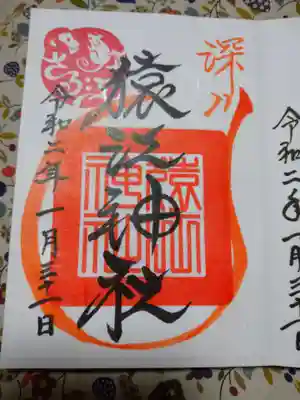 深川
猿江神社
令和二年 一月三十一日
令和二年 一月三十一日